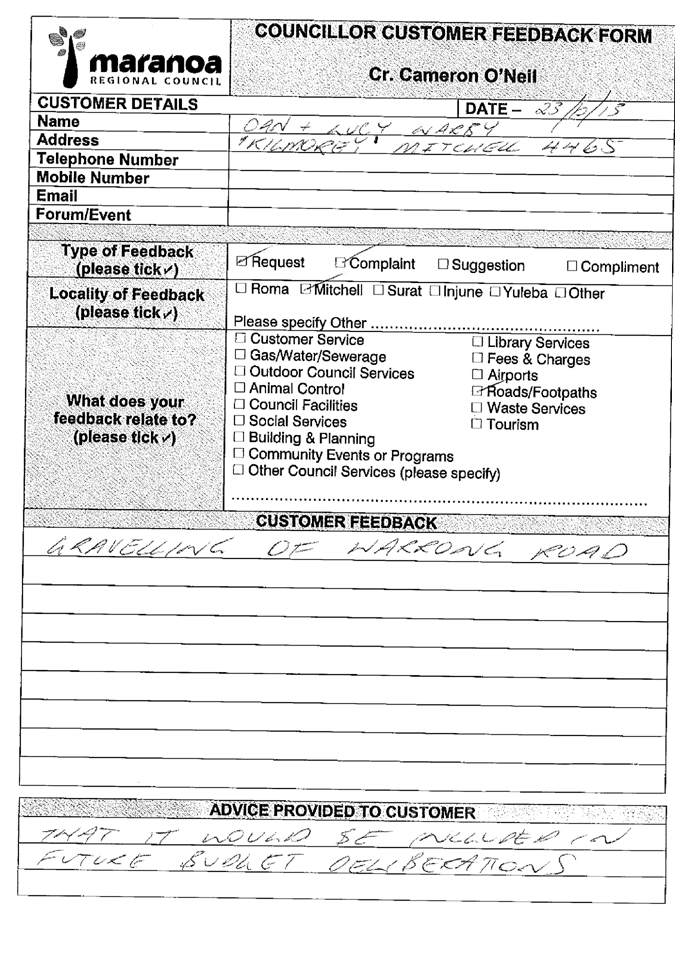 maranoa
REGIONAL COUNCIL
COUNCILLOR CUSTOMER FEEDBACK FORM
Cr. Cameron O'Neil
CUSTOMER DETAILS
DATE – 23/ /13
Name DAN + LUCY WARBY
Address "KILMOREY" MITCHELL 4465
Telephone Number
Mobile Number
Email
Forum/Event
Type of Feedback
(please tick ✓)
☑ Request ☑ Complaint ☐ Suggestion ☐ Compliment
Locality of Feedback
(please tick ✓)
☐ Roma ☑ Mitchell ☐ Surat ☐ Injune ☐ Yuleba ☐ Other
Please specify Other ................................................
What does your
feedback relate to?
(please tick ✓)
☐ Customer Service
☐ Gas/Water/Sewerage
☐ Outdoor Council Services
☐ Animal Control
☐ Council Facilities
☐ Social Services
☐ Building & Planning
☐ Community Events or Programs
☐ Other Council Services (please specify)
☐ Library Services
☐ Fees & Charges
☐ Airports
☑ Roads/Footpaths
☐ Waste Services
☐ Tourism
................................................................................
CUSTOMER FEEDBACK
GRAVELLING OF WARRONG ROAD
ADVICE PROVIDED TO CUSTOMER
THAT IT WOULD BE INCLUDED IN
FUTURE BUDGET DELIBERATIONS